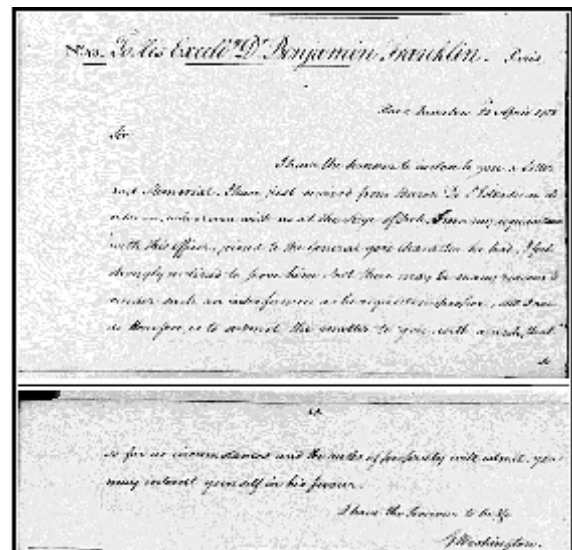 To His Excelly Dr Benjamin Franklin. Paris
Sir
I have the honour to inclose to you a letter
and Memorial I have just received from Baron De
who was with us at the siege of York. From my acquaintance
with this officer, joined to the general good character he had, I feel
strongly inclined to serve him; but there may be many reasons to
render such an interference as he requests improper, all I can
do therefore, is to submit the matter to you, with a wish, that
so far as circumstances and the rules of propriety will admit. you
may interest yourself in his favour.
I have the honour to be &c
G Washington.